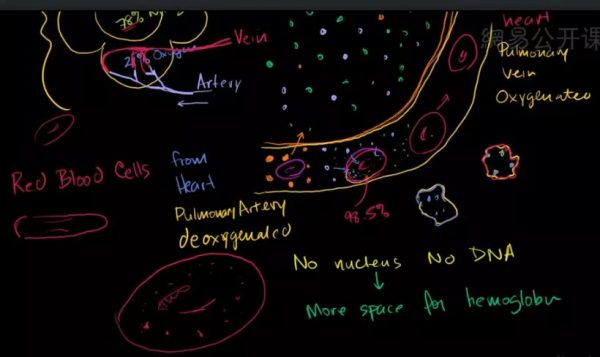 78% N
Vein
21% Oxygen
Artery
heart
網易公开课
Pulmonary
vein
Oxygenated
Red Blood Cells
from
Heart
Pulmonary Artery
deoxygenated
98.5%
No nucleus No DNA
More space for hemoglobin